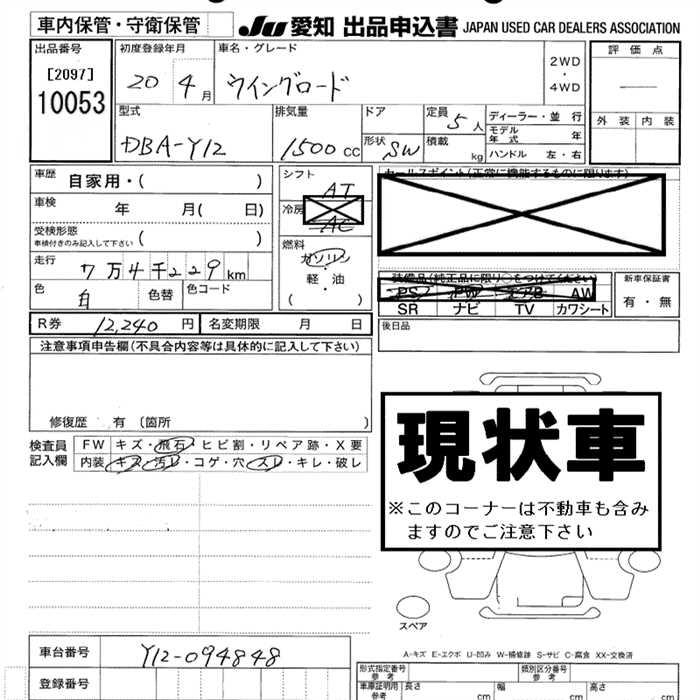 車内保管・守衛保管 JU 愛知 出品申込書 JAPAN USED CAR DEALERS ASSOCIATION
出品番号 初度登録年月 車名・グレード 評価点
[2097] 20 4月 ウイングロード 2WD・4WD
10053
型式 排気量 ドア 定員 5人 ディーラー・並行 外装 内装
DBA-Y12 1500cc 形状 SW 積載 kg モデル年式 年
ハンドル 左・右
車歴 自家用・( ) シフト AT セールスポイント(正常に機能するものに限ります)
車検 年 月( 日) 冷房 AC
受検形態 車検付きのみ記入して下さい ( )
燃料 ガソリン
走行 7万4千229km 軽・油 装備品(純正品に限り○をつけてください) 新車保証書
色 白 色替 色コード ( ) PS PW エアB AW 有・無
SR ナビ TV カワシート
R券 12,240円 名変期限 月 日 後日品
注意事項申告欄(不具合内容等は具体的に記入して下さい)
修復歴 有 (箇所 )
現状車
※このコーナーは不動車も含みますのでご注意下さい
検査員記入欄 FW キズ・飛石・ヒビ割・リペア跡・X要
内装 キズ・汚レ・コゲ・穴・スレ・キレ・破レ
スペア
A-キズ E-エクボ U-凹み W-補修跡 S-サビ C-腐食 XX-交換済
車台番号 Y12-094848
登録番号
形式指定番号 参考 類別区分番号 参考
車庫証明用 参考 長さ cm 幅 cm 高さ cm